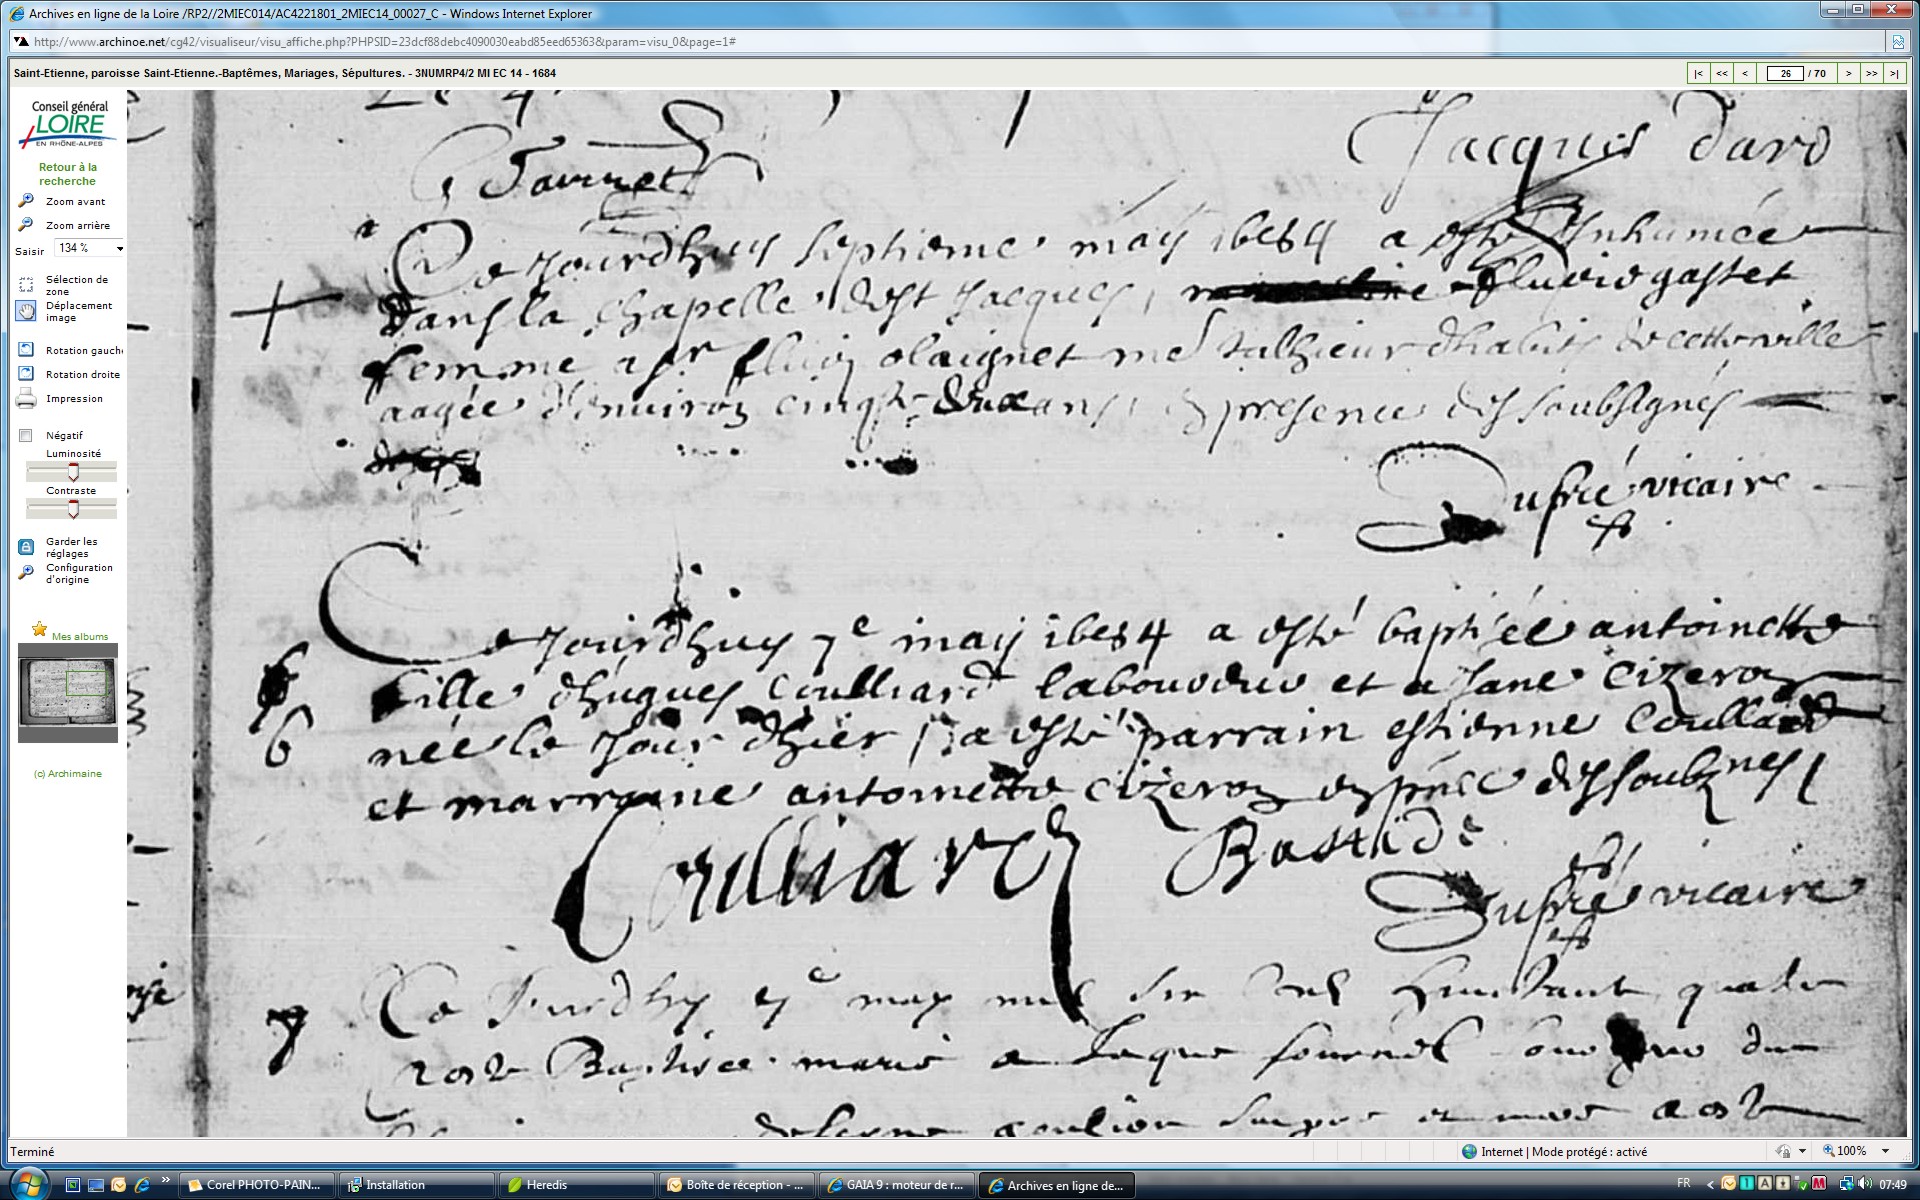 Archives en ligne de la Loire /RP2//2MIEC014/AC4221801_2MIEC14_00027_C - Windows Internet Explorer
http://www.archinoe.net/cg42/visualiseur/visu_affiche.php?PHPSID=23dcf88debc4090030eabd85eed65363&param=visu_0&page=1#
Saint-Etienne, paroisse Saint-Etienne.-Baptêmes, Mariages, Sépultures. - 3NUMRP4/2 MI EC 14 - 1684
|< << < 26 / 70 > >> >|
Conseil général
LOIRE
EN RHÔNE-ALPES
Retour à la
recherche
Zoom avant
Zoom arrière
Saisir 134 %
Sélection de
zone
Déplacement
image
Rotation gauche
Rotation droite
Impression
Négatif
Luminosité
Contraste
Garder les
réglages
Configuration
d'origine
Mes albums
(c) Archimaine
Jacques
Ce Jourdhuy septieme may 1684 a esté Inhumée
dans la chapelle de st Jacques, gastet
femme a sr me talheur dhabits de cette ville
aagée d'environ cinqte deux ans, en presence des soubsignés
Dufré vicaire
Ce Jourdhuy 7e may 1684 a esté baptisée antoinette
fille dhugues Coulliard laboureur et a Jane Cizeron
6 née le Jour dhier, a esté parrain estienne Coullard
et marraine antoinette Cizeron en pnce des soubznes
Coulliard Bastide
Dufré vicaire
7 Ce Jourdhuy 7e may mil six cent huictante quatre
a este Baptisee marie a
Terminé
Internet | Mode protégé : activé
100%
Corel PHOTO-PAIN...
Installation
Heredis
Boîte de réception - ...
GAIA 9 : moteur de r...
Archives en ligne de...
FR
07:49